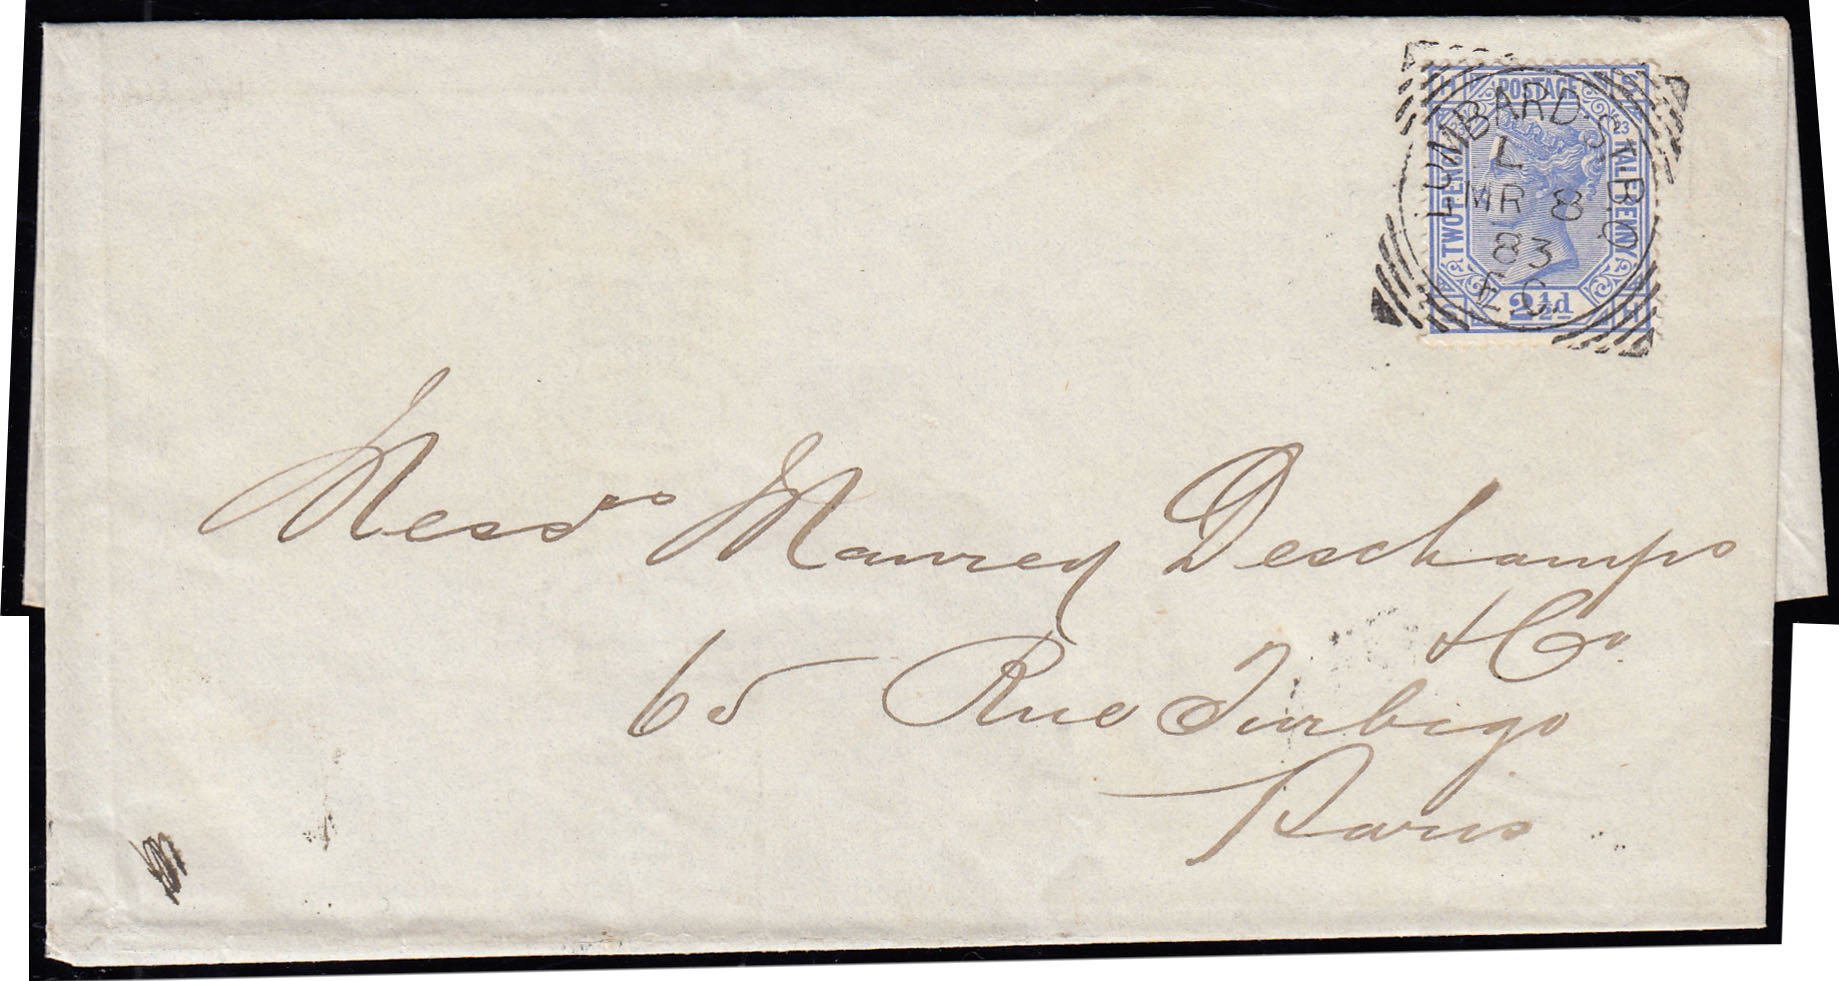 POSTAGE
TWO PENCE
HALFPENNY
23
2½d
LOMBARD.ST.B.O
L
MR 8
83
E.C.
Messrs Deschamps
& Co
65 Rue Turbigo
Paris